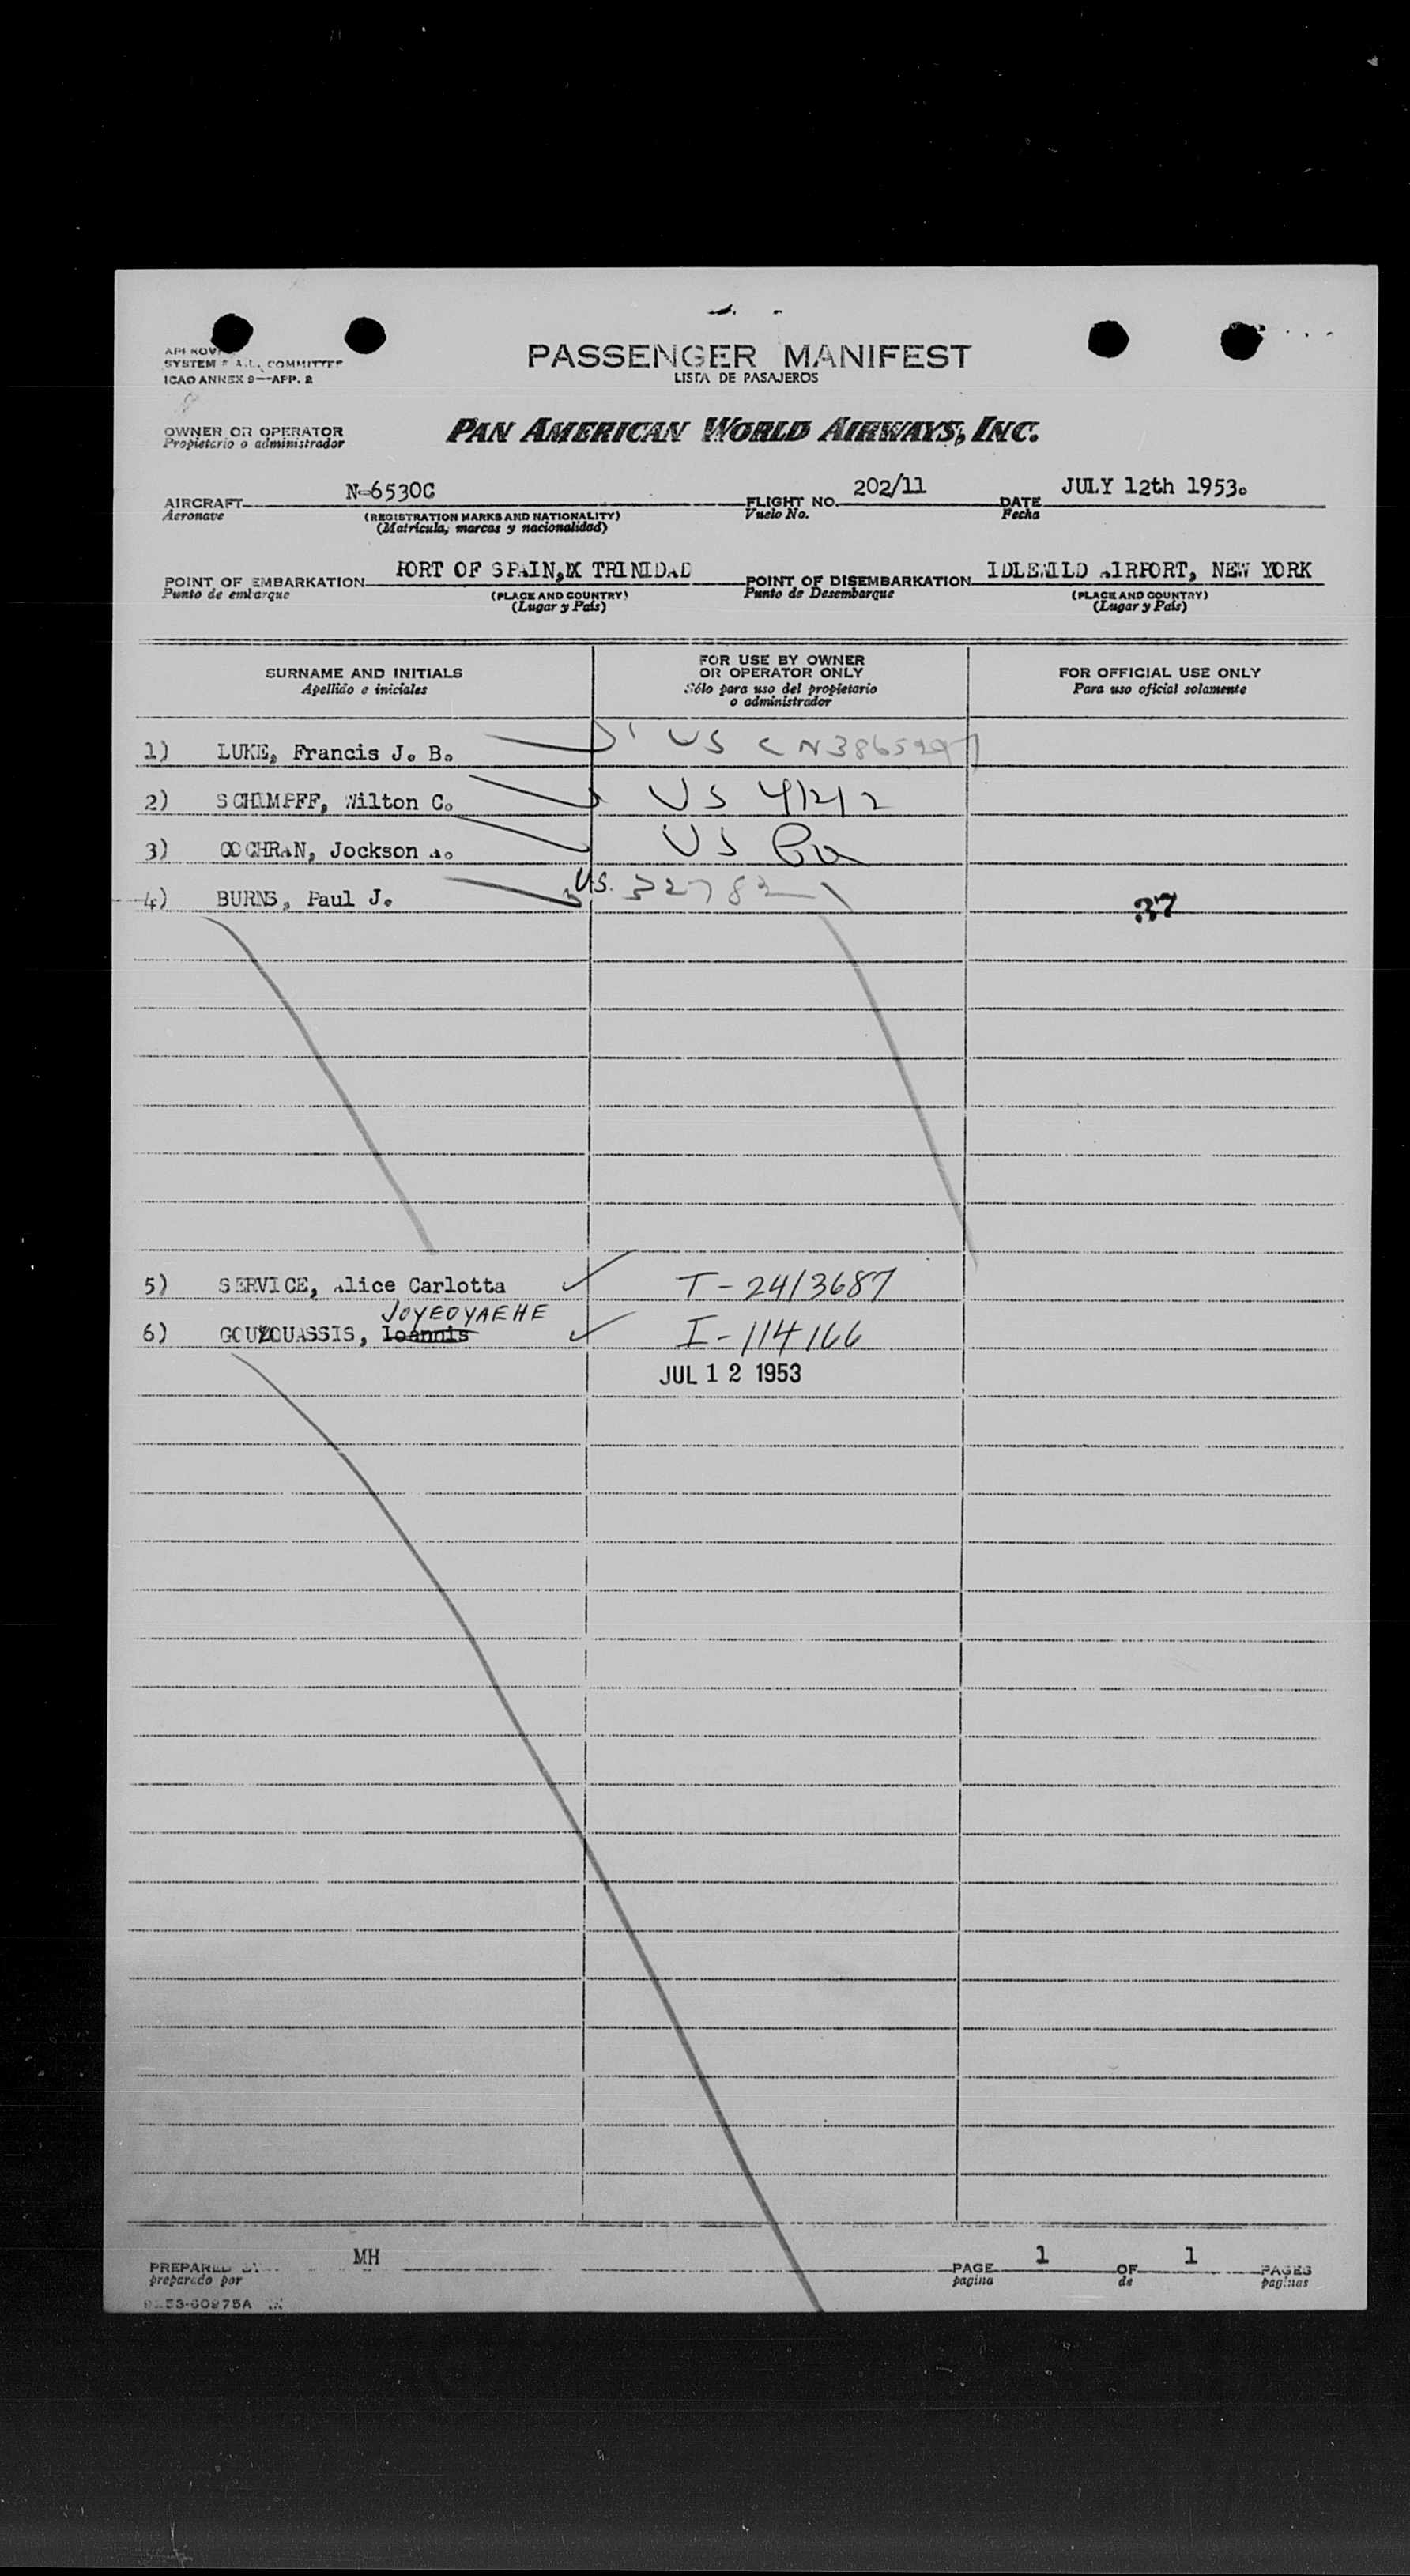 PASSENGER MANIFEST
LISTA DE PASAJEROS
SYSTEM F.A.L. COMMITTEE
ICAO ANNEX 9—APP. 2
OWNER OR OPERATOR
Propietario o administrador
PAN AMERICAN WORLD AIRWAYS, INC.
AIRCRAFT N-6530C FLIGHT NO. 202/11 DATE JULY 12th 1953.
Aeronave (REGISTRATION MARKS AND NATIONALITY) Vuelo No. Fecha
(Matrícula, marcas y nacionalidad)
POINT OF EMBARKATION PORT OF SPAIN, TRINIDAD POINT OF DISEMBARKATION IDLEWILD AIRPORT, NEW YORK
Punto de embarque (PLACE AND COUNTRY) Punto de Desembarque (PLACE AND COUNTRY)
(Lugar y País) (Lugar y País)
SURNAME AND INITIALS
Apellido e iniciales
FOR USE BY OWNER
OR OPERATOR ONLY
Sólo para uso del propietario
o administrador
FOR OFFICIAL USE ONLY
Para uso oficial solamente
1) LUKE, Francis J. B. US
2) SCHIMPFF, Wilton C. US 4/2/2
3) COCHRAN, Jockson A. US
4) BURNS, Paul J. US. 32782 37
5) SERVICE, Alice Carlotta T-2413687
JOYEOYAEHE
6) GOUZOUASSIS, Ioannis I-114166
JUL 12 1953
PREPARED BY MH PAGE 1 OF 1 PAGES
preparado por pagina de paginas